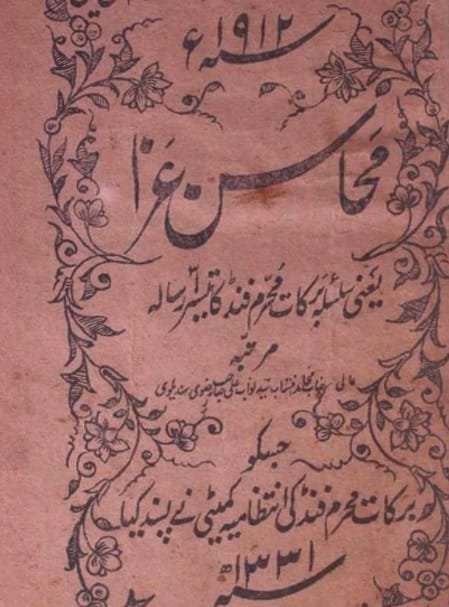 سنہ ۱۹۱۲ ء
محاسن عزا
یعنی سلسلہ برکات محرم فنڈ کا تیسرا رسالہ
مرتبہ
عالی جناب سید نواب علی صاحب رضوی سندیلوی
جسکو
برکات محرم فنڈ کی انتظامیہ کمیٹی نے پسند کیا
سنہ ۱۳۳۱ ھ